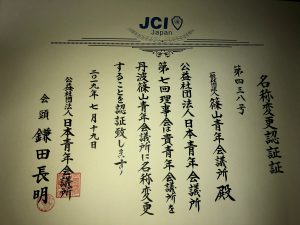 JCI
Japan
名称変更認証証
第四三八号
一般社団法人篠山青年会議所 殿
公益社団法人日本青年会議所
第七回理事会は貴青年会議所を
丹波篠山青年会議所に名称変更
することを認証致します
二〇一九年 七月十九日
公益社団法人日本青年会議所
会頭 鎌田長明